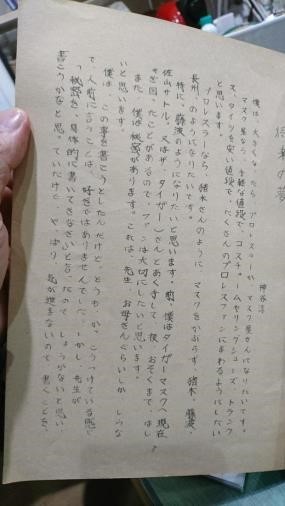 将来の夢
神谷活
僕は、大きくなったらプロレスラーか、マスク屋さんになりたいです。
マスク屋なら、手軽な値段で、コスチュームやリングシューズ、トランク
ス、タイツを安い値段で、たくさんのプロレスファンにまわるようにしたい
と思います。
プロレスラーなら、猪木さんのように、マスクをかぶらず、猪木、藤波、
長州、のようになりたいです。
特に、藤波のようになりたいと思います。前、僕はタイガーマスク(現在
佐山サトル、又はザ・タイガー)さんとあくまで、夜、おそくまで、はし
を回ったことがあるので、ファンは大切にしたいと思います。
また、僕は秘密があります。これは、先生、お母さんぐらいしか、しらな
いと思います。
僕は、この事を書こうとしたんだけど、どうも、かっこうつけている感じ
で、人前に言うことは、好きではありませんでした。しかし、先生が
「秘密を、具体的に書いてきなさい」と言ったので、しょうがないと思い、
書こうかなと思っていたけど、やっぱり、気が進まないので、書くことを、